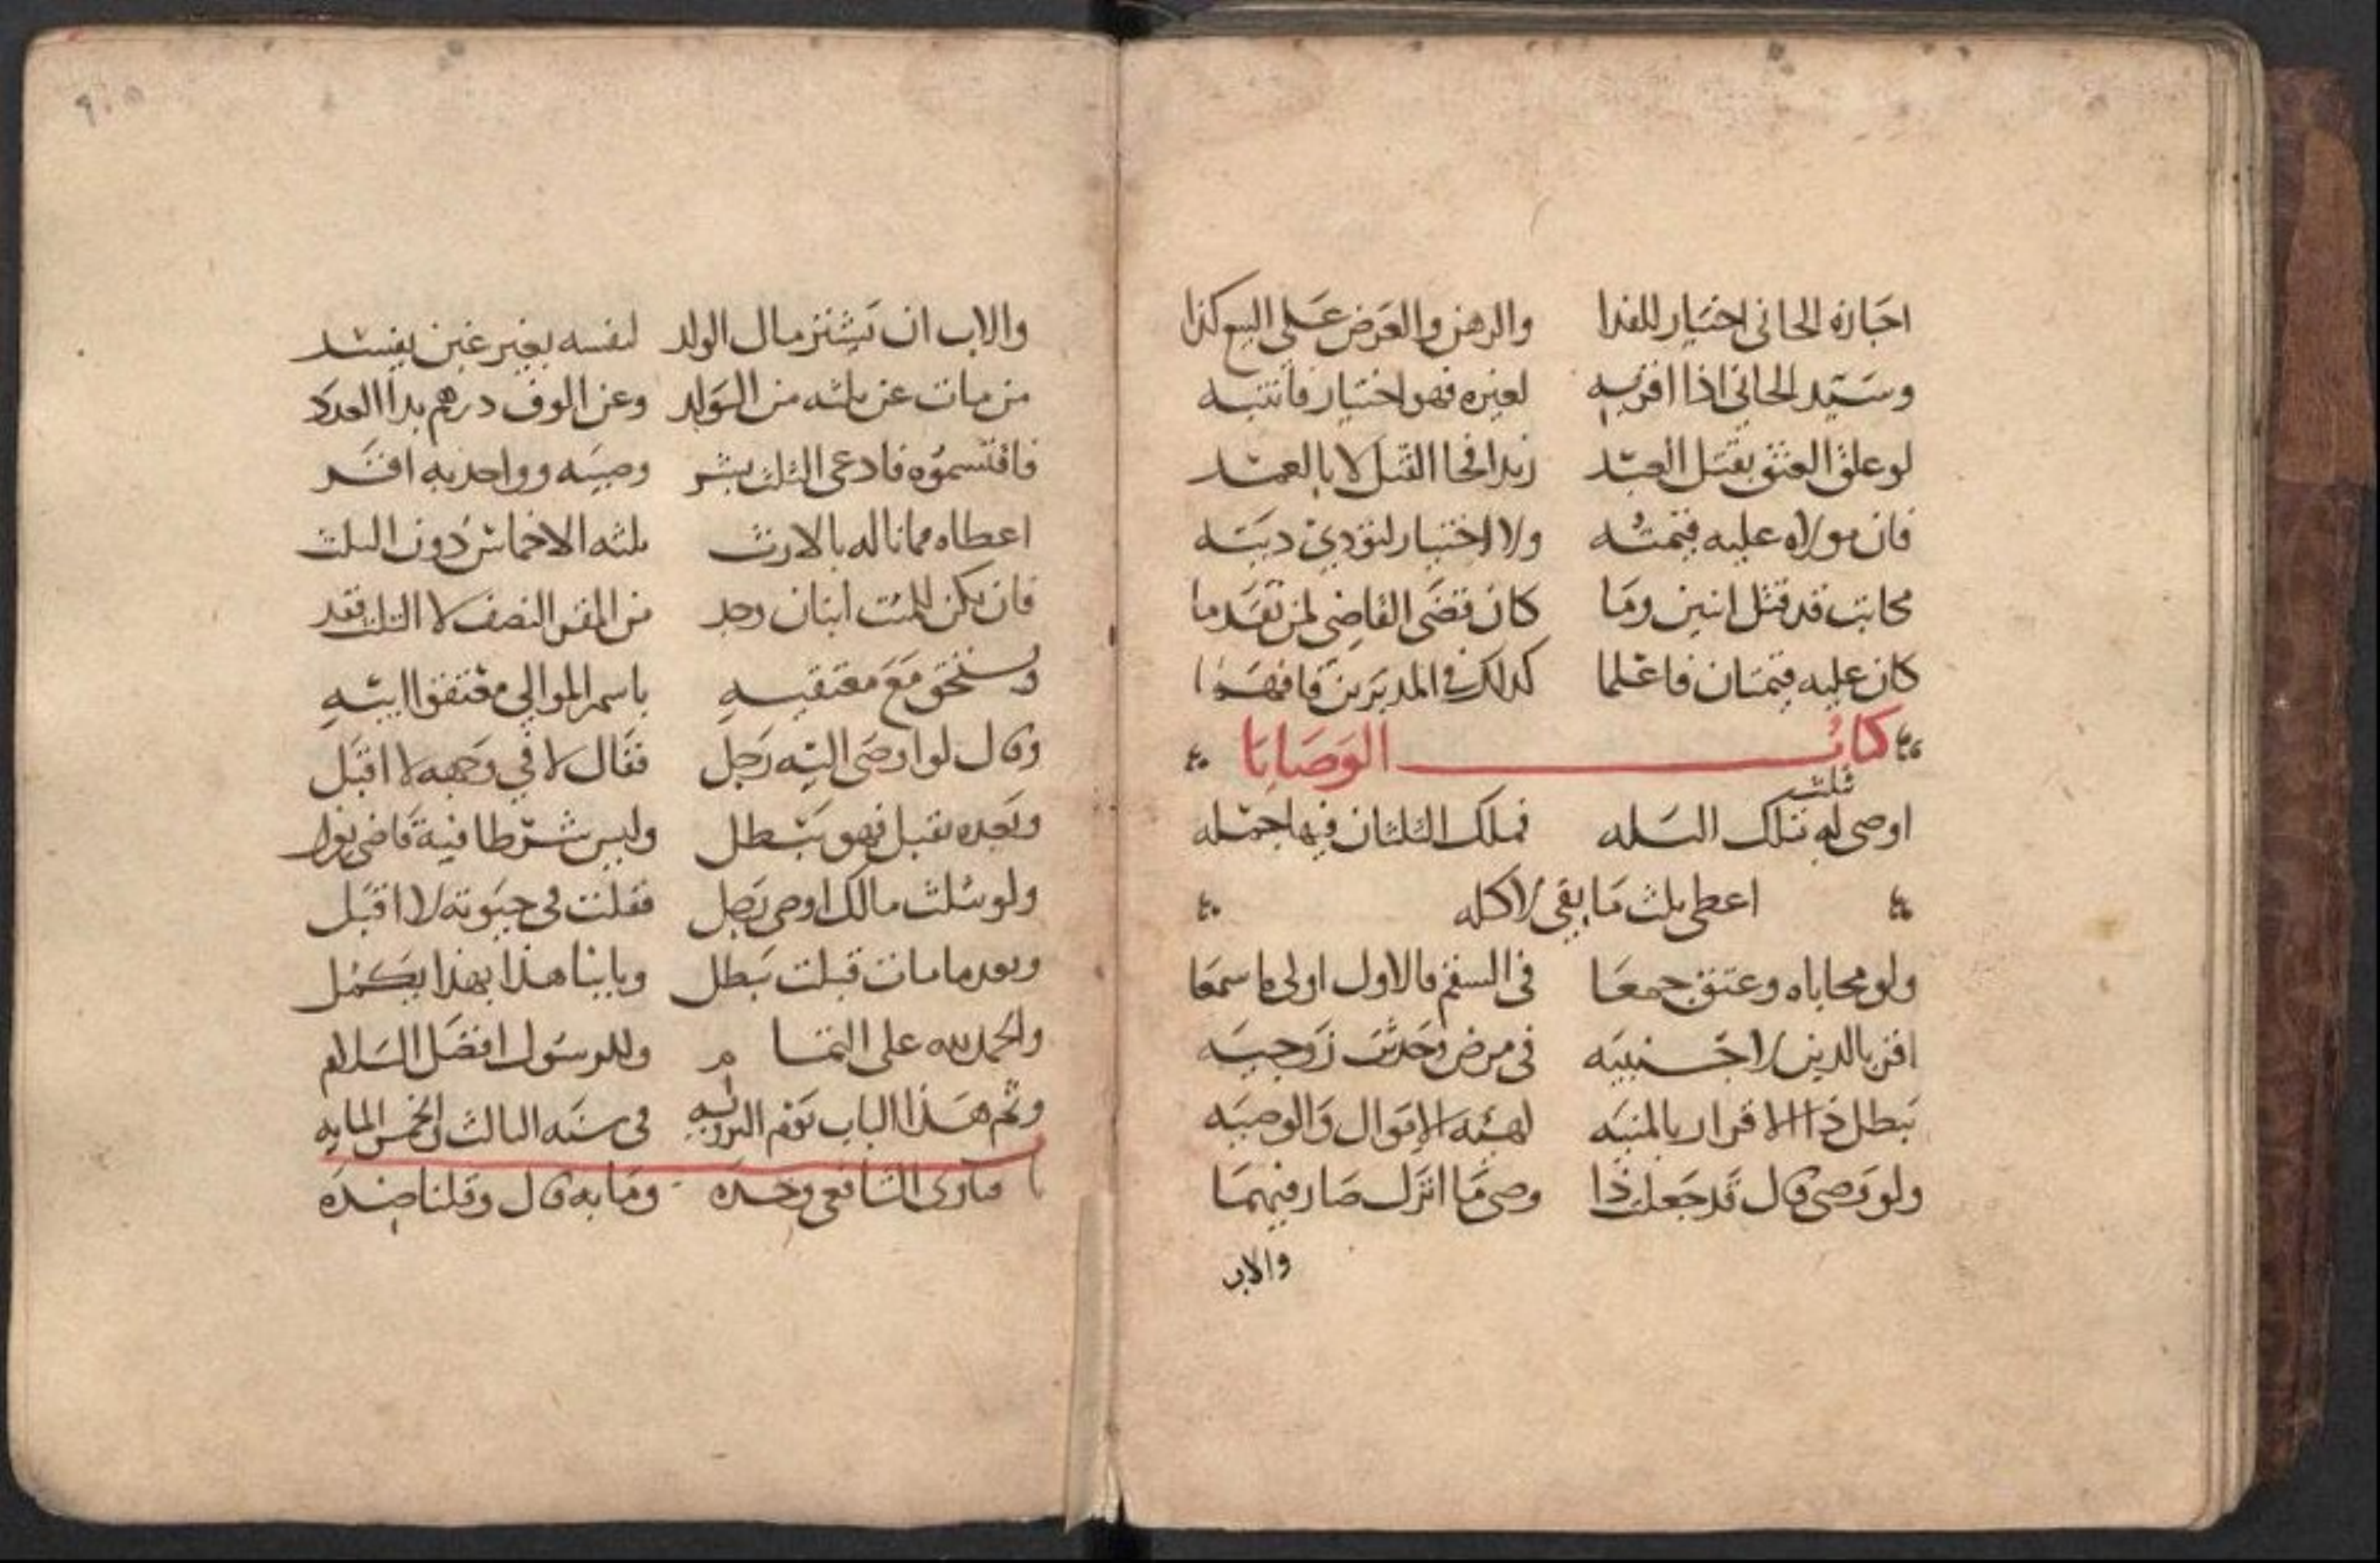 اجازه الجانى اختيار للفدا والرهن والعرض على البيع كذا
وسيد الجانى اذا اقر به لغيره فهو اختيار فانتبه
لو علق العتق بقتل العبد زيدا فجا القتل لا بالعمد
فان مولاه عليه قيمته ولا اختيار لنؤدي ديته
مكاتب قد قتل اثنين وما كان قضى القاضي لمن تقدما
كان عليه قيمتان فاعلما كذلك في المدبرين فافهما
كتاب الوصايا
اوصى له بثلث تلك الثله فهلك الثلثان فيها جمله
اعطى ثلث ما بقى لا كله
ولو محاباه وعتق جمعا في السقم فالاول اولى فاسمعا
اقر بالدين لاجنبيه في مرض وحدثت زوجيه
يبطل ذا الاقرار بالمنيه لهبه الاموال والوصيه
ولو وصى قال قد جعلت ذا وصى ما اترك صار فيهما
والاب
والاب ان يشتر مال الولد لنفسه بغير غبن يفسد
من مات عن ثلثه من الولد وعن الوف درهم بدا العدد
فاقتسموه فادعى الثلث بشر وصيه وواحد به اقر
اعطاه مما ناله بالارث ثلثه الاخماس دون الثلث
فان يكن للميت ابنان وجد من المقر النصف لا الثلث فقد
ويستحق مع معتقيه باسم الموالي معتقوا ابيه
وقال لو اوصى اليه رجل فقال لا في وجهه لا اقبل
وبعده يقبل فهو يبطل وليس شرطا فيه قاض
ولو بثلث مالك اوصى رجل فقلت في حيوته لا اقبل
وبعد ما مات قبلت يبطل وبابنا هذا بهذا يكمل
والحمد لله على التمام وللرسول افضل السلام
وتم هذا الباب يوم الترويه في سنه الثالث الخمس المايه
فتاوى الشافعي وحده وما به قال وقلنا ضده